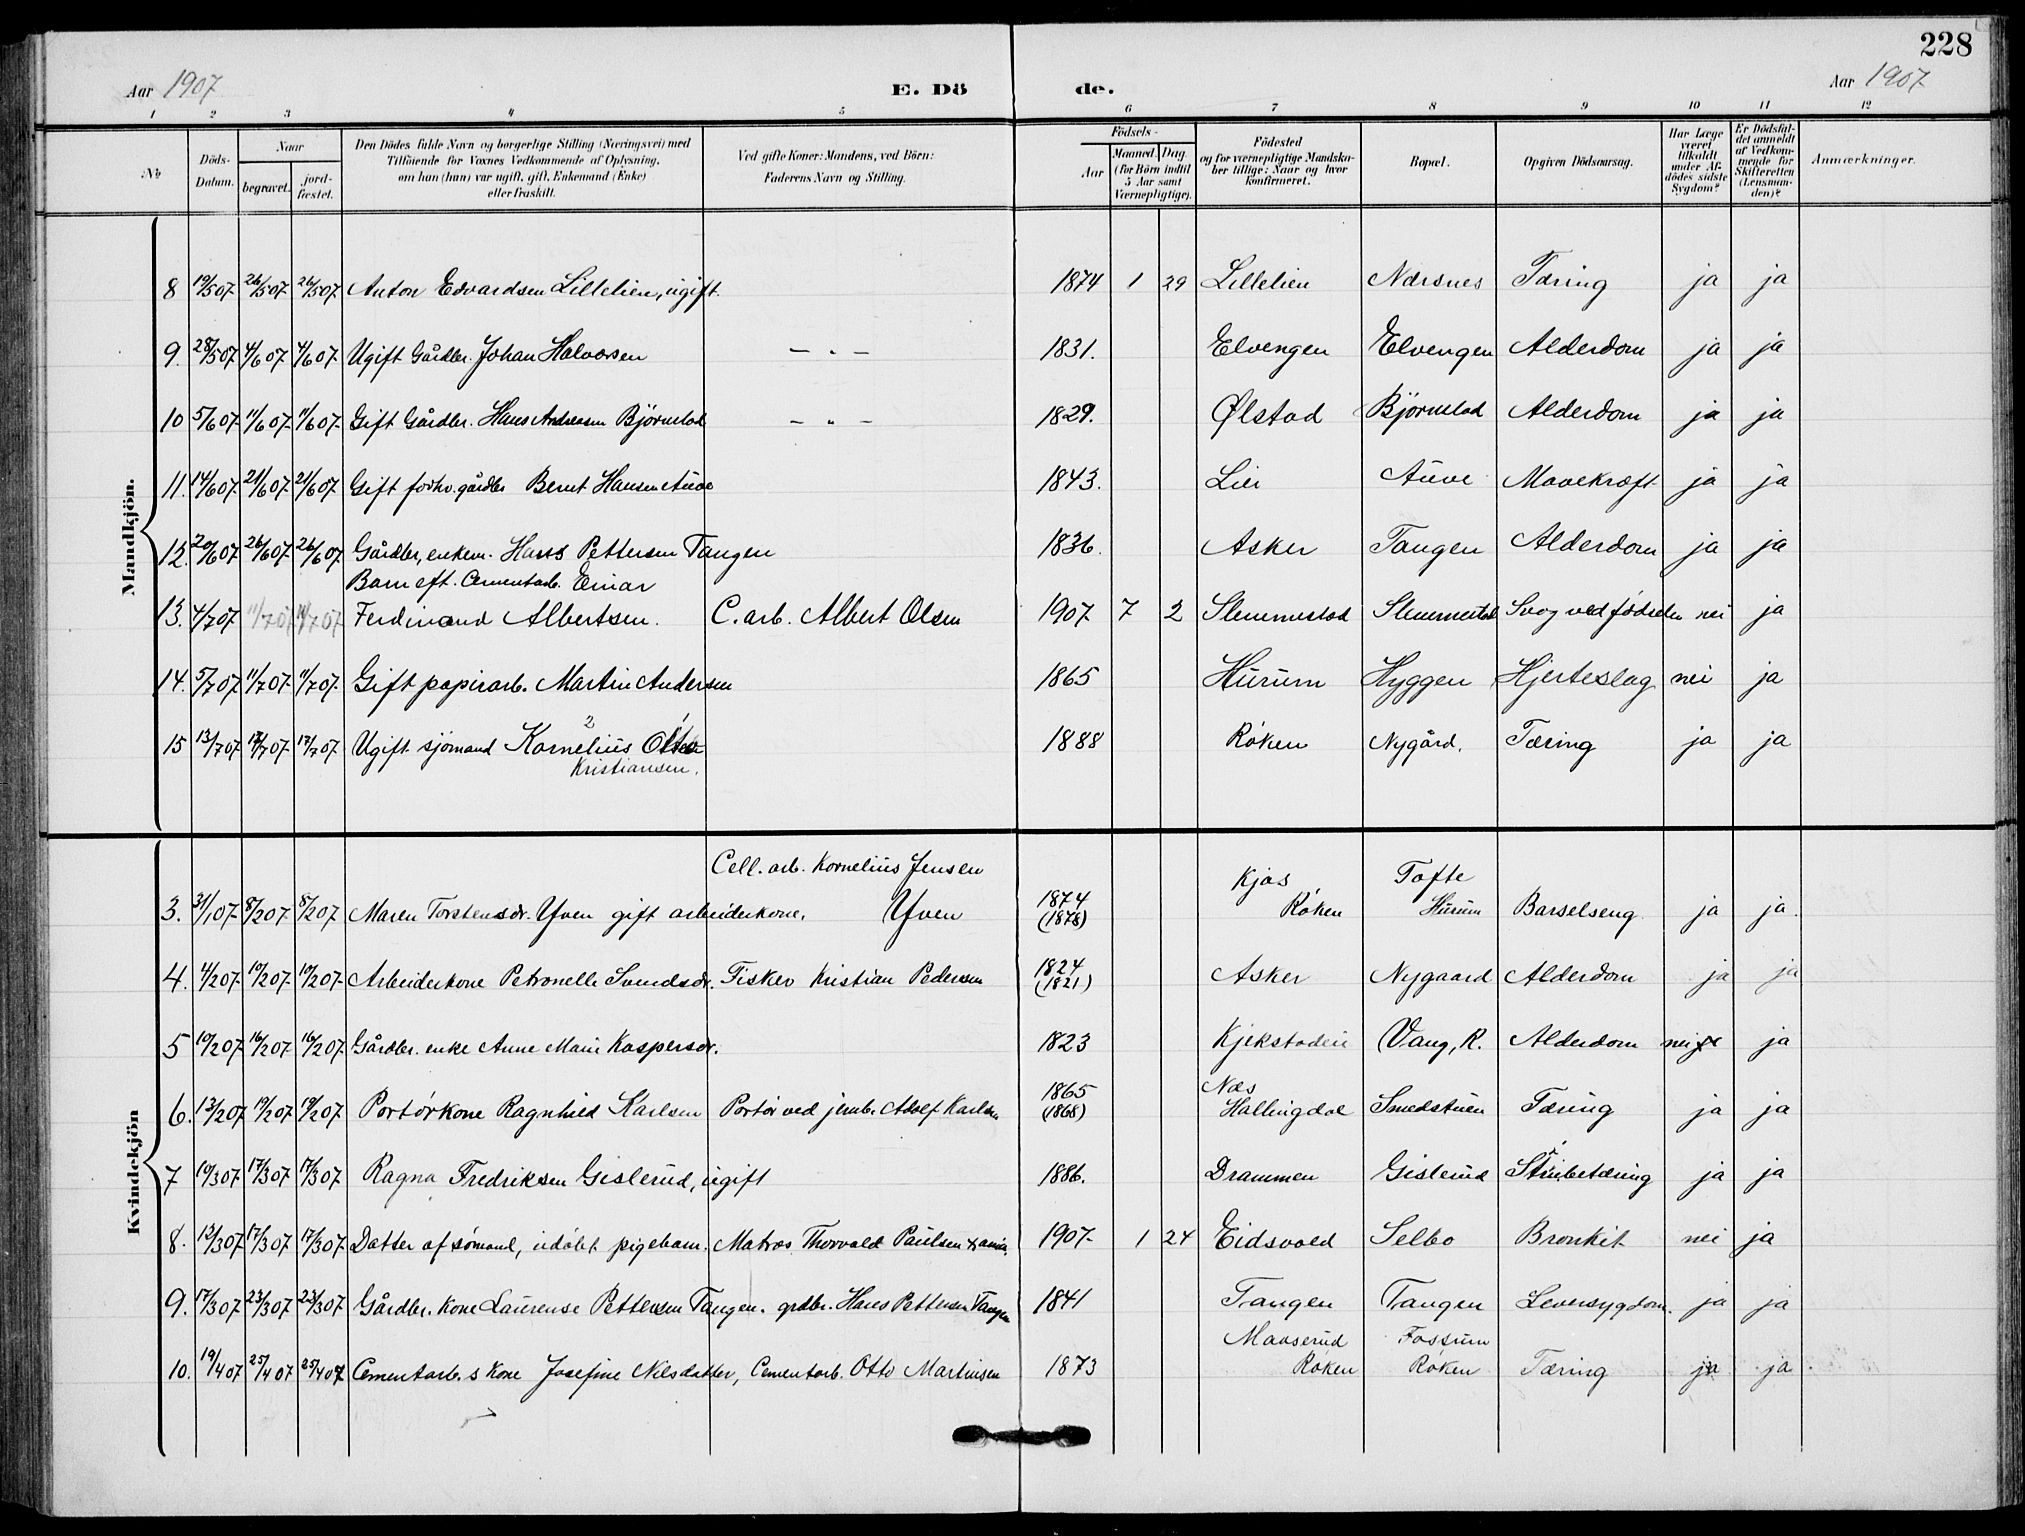 228
Aar 1907 E. Dö de. Aar 1907
1 2 3 4 5 6 7 8 9 10 11 12
No
Döds-Datum.
Naar
begravet.
jord-fæstet.
Den Dödes fulde Navn og borgerlige Stilling (Næringsvei) med
Tilföiende for Voxnes Vedkommende af Oplysning,
om han (hun) var ugift, gift, Enkemand (Enke)
eller fraskilt.
Ved gifte Koner: Mandens, ved Börn:
Faderens Navn og Stilling.
Födsels-
Aar
Maaned. Dag
(for Börn indtil
5 Aar samt
Værnepligtige).
Födested
og for værnepligtige Mandska-
ber tillige: Naar og hvor
konfirmeret.
Bopæl.
Opgiven Dödsaarsag.
Har Læge
været
tilkaldt
under Af-
dödes sidste
Sygdom?
Er Dödsfal-
det anmeldt
af Vedkom-
mende for
Skifteretten
(Lensman-
den)?
Anmærkninger.
Mandkjön.
8 19/5 07 26/5 07 26/5 07 Anton Edvardsen Lillelien, ugift. 1874 1 29 Lillelien Nærsnes Tæring ja ja
9. 28/5 07 4/6 07 4/6 07 Ugift Gårdbr. Johan Halvorsen — " — 1831. Elvengen Elvengen Alderdom ja ja
10 5/6 07 11/6 07 11/6 07 Gift Gårdbr. Hans Andersen Björnstad — " — 1829. Ølstad Björnstad Alderdom ja ja
11. 14/6 07 21/6 07 21/6 07 Gift forhv. gårdbr Bernt Hansen Auve 1843. Lier Auve Mavekræft ja ja
12. 20/6 07 26/6 07 26/6 07 Gårdbr, enkem. Hans Pettersen Tangen 1836. Asker Tangen Alderdom ja ja
Barn eft. Cementarb. Einar
13. 4/7 07 11/7 07 11/7 07 Ferdinand Albertsen. C. arb. Albert Olsen 1907 7 2 Slemmestad Slemmestad Svag ved fødselen nei ja
14. 5/7 07 11/7 07 11/7 07 Gift papirarb. Martin Andersen 1865 Hurum Hyggen Hjerteslag nei ja
2 1
15 13/7 07 17/7 07 17/7 07 Ugift sjömand Kornelius Otto 1888 Röken Nygård. Tæring ja ja
Kristiansen.
Kvindekjön
Cell. arb. Kornelius Jensen Kjos Tofte
3. 31/1 07 8/2 07 8/2 07 Maren Torstensdr. Yven gift arbeiderkone. Yven 1874 (1878) Röken Hurum Barselseng ja ja.
4. 4/2 07 10/2 07 10/2 07 Arbeiderkone Petronelle Svendsdr. Fisker Kristian Pedersen 1824 (1821) Asker Nygaard Alderdom ja ja
5 10/2 07 16/2 07 16/2 07 Gårdbr. enke Anne Marie Kaspersdr. 1823 Kjekstadeie Vang, R. Alderdom nei ja
6. 13/2 07 19/2 07 19/2 07 Portörkone Ragnhild Karlsen Portör ved jernb. Adolf Karlsen 1865 (1868) Næs Hallingdal Smedstuen Tæring ja ja
7 10/3 07 17/3 07 17/3 07 Ragna Fredriksen Gislerud, ugift 1886. Drammen Gislerud Strubetæring ja ja
8. 12/3 07 17/3 07 17/3 07 Datter af sömand, udöbt pigebarn. Matros Thorvald Paulsen 1907 1 24 Eidsvold Selbo Bronkit nei ja
9. 17/3 07 23/3 07 23/3 07 Gårdbr. Kone Laurense Pettersen Tangen. grdbr. Hans Pettersen Tangen 1841 Tangen Tangen Leversygdom. ja ja
Maaserud Fossum
10. 19/4 07 25/4 07 25/4 07 Cementarb.s Kone Josefine Nilsdatter, Cementarb. Otto Martinsen 1873 Röken Röken Tæring ja ja